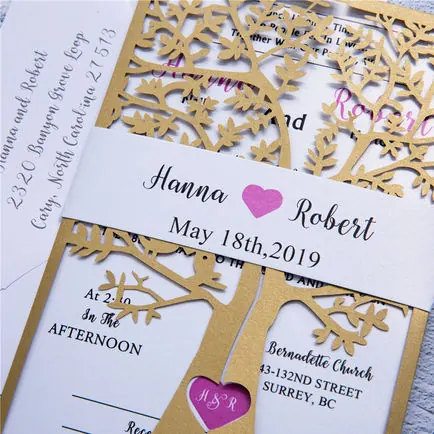 Hanna and Robert
2320 Banyon Grove Loop
Cary, North Carolina 27513
Time
In Love
Together With Our
Robert
and
Hanna Robert
May 18th,2019
AND
At 2:30
In The
AFTERNOON
Bernadette Church
43-132ND STREET
SURREY, BC
H & R